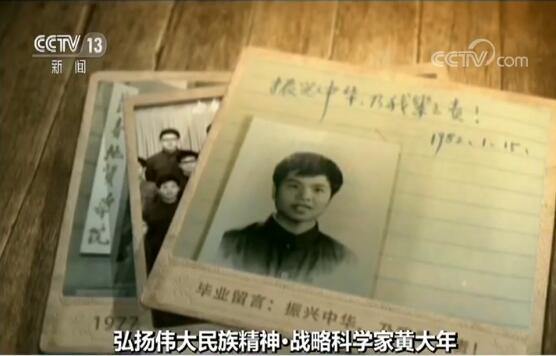 CCTV 13
新闻
CCTV.com
振兴中华,乃我辈之责!
1982.1.15.
毕业留言:振兴中华,
责!
1977
弘扬伟大民族精神·战略科学家黄大年